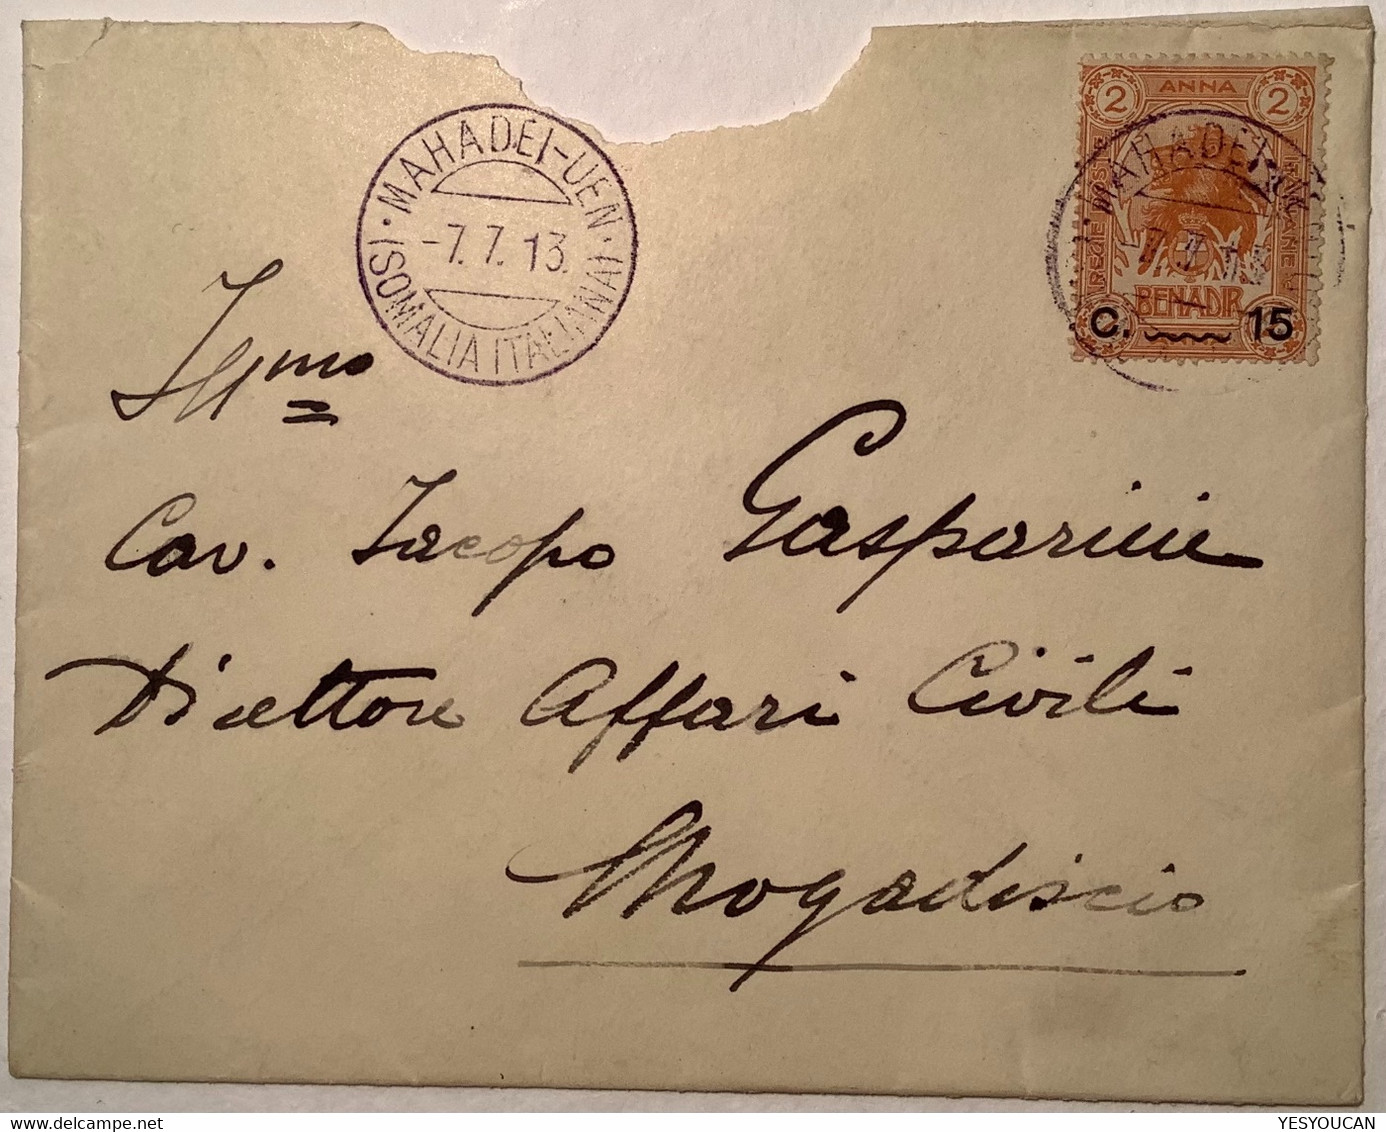 · MAHADEI-UEN ·
-7.7.13.
(SOMALIA ITALIANA)
2 ANNA 2
REGIE POSTE
ITALIANE
BENADIR
C. 15
MAHADEI
-7.7.13
Ill.mo
Cav. Jacopo Gasparini
Direttore Affari Civili
Mogadiscio
YESYOUCAN